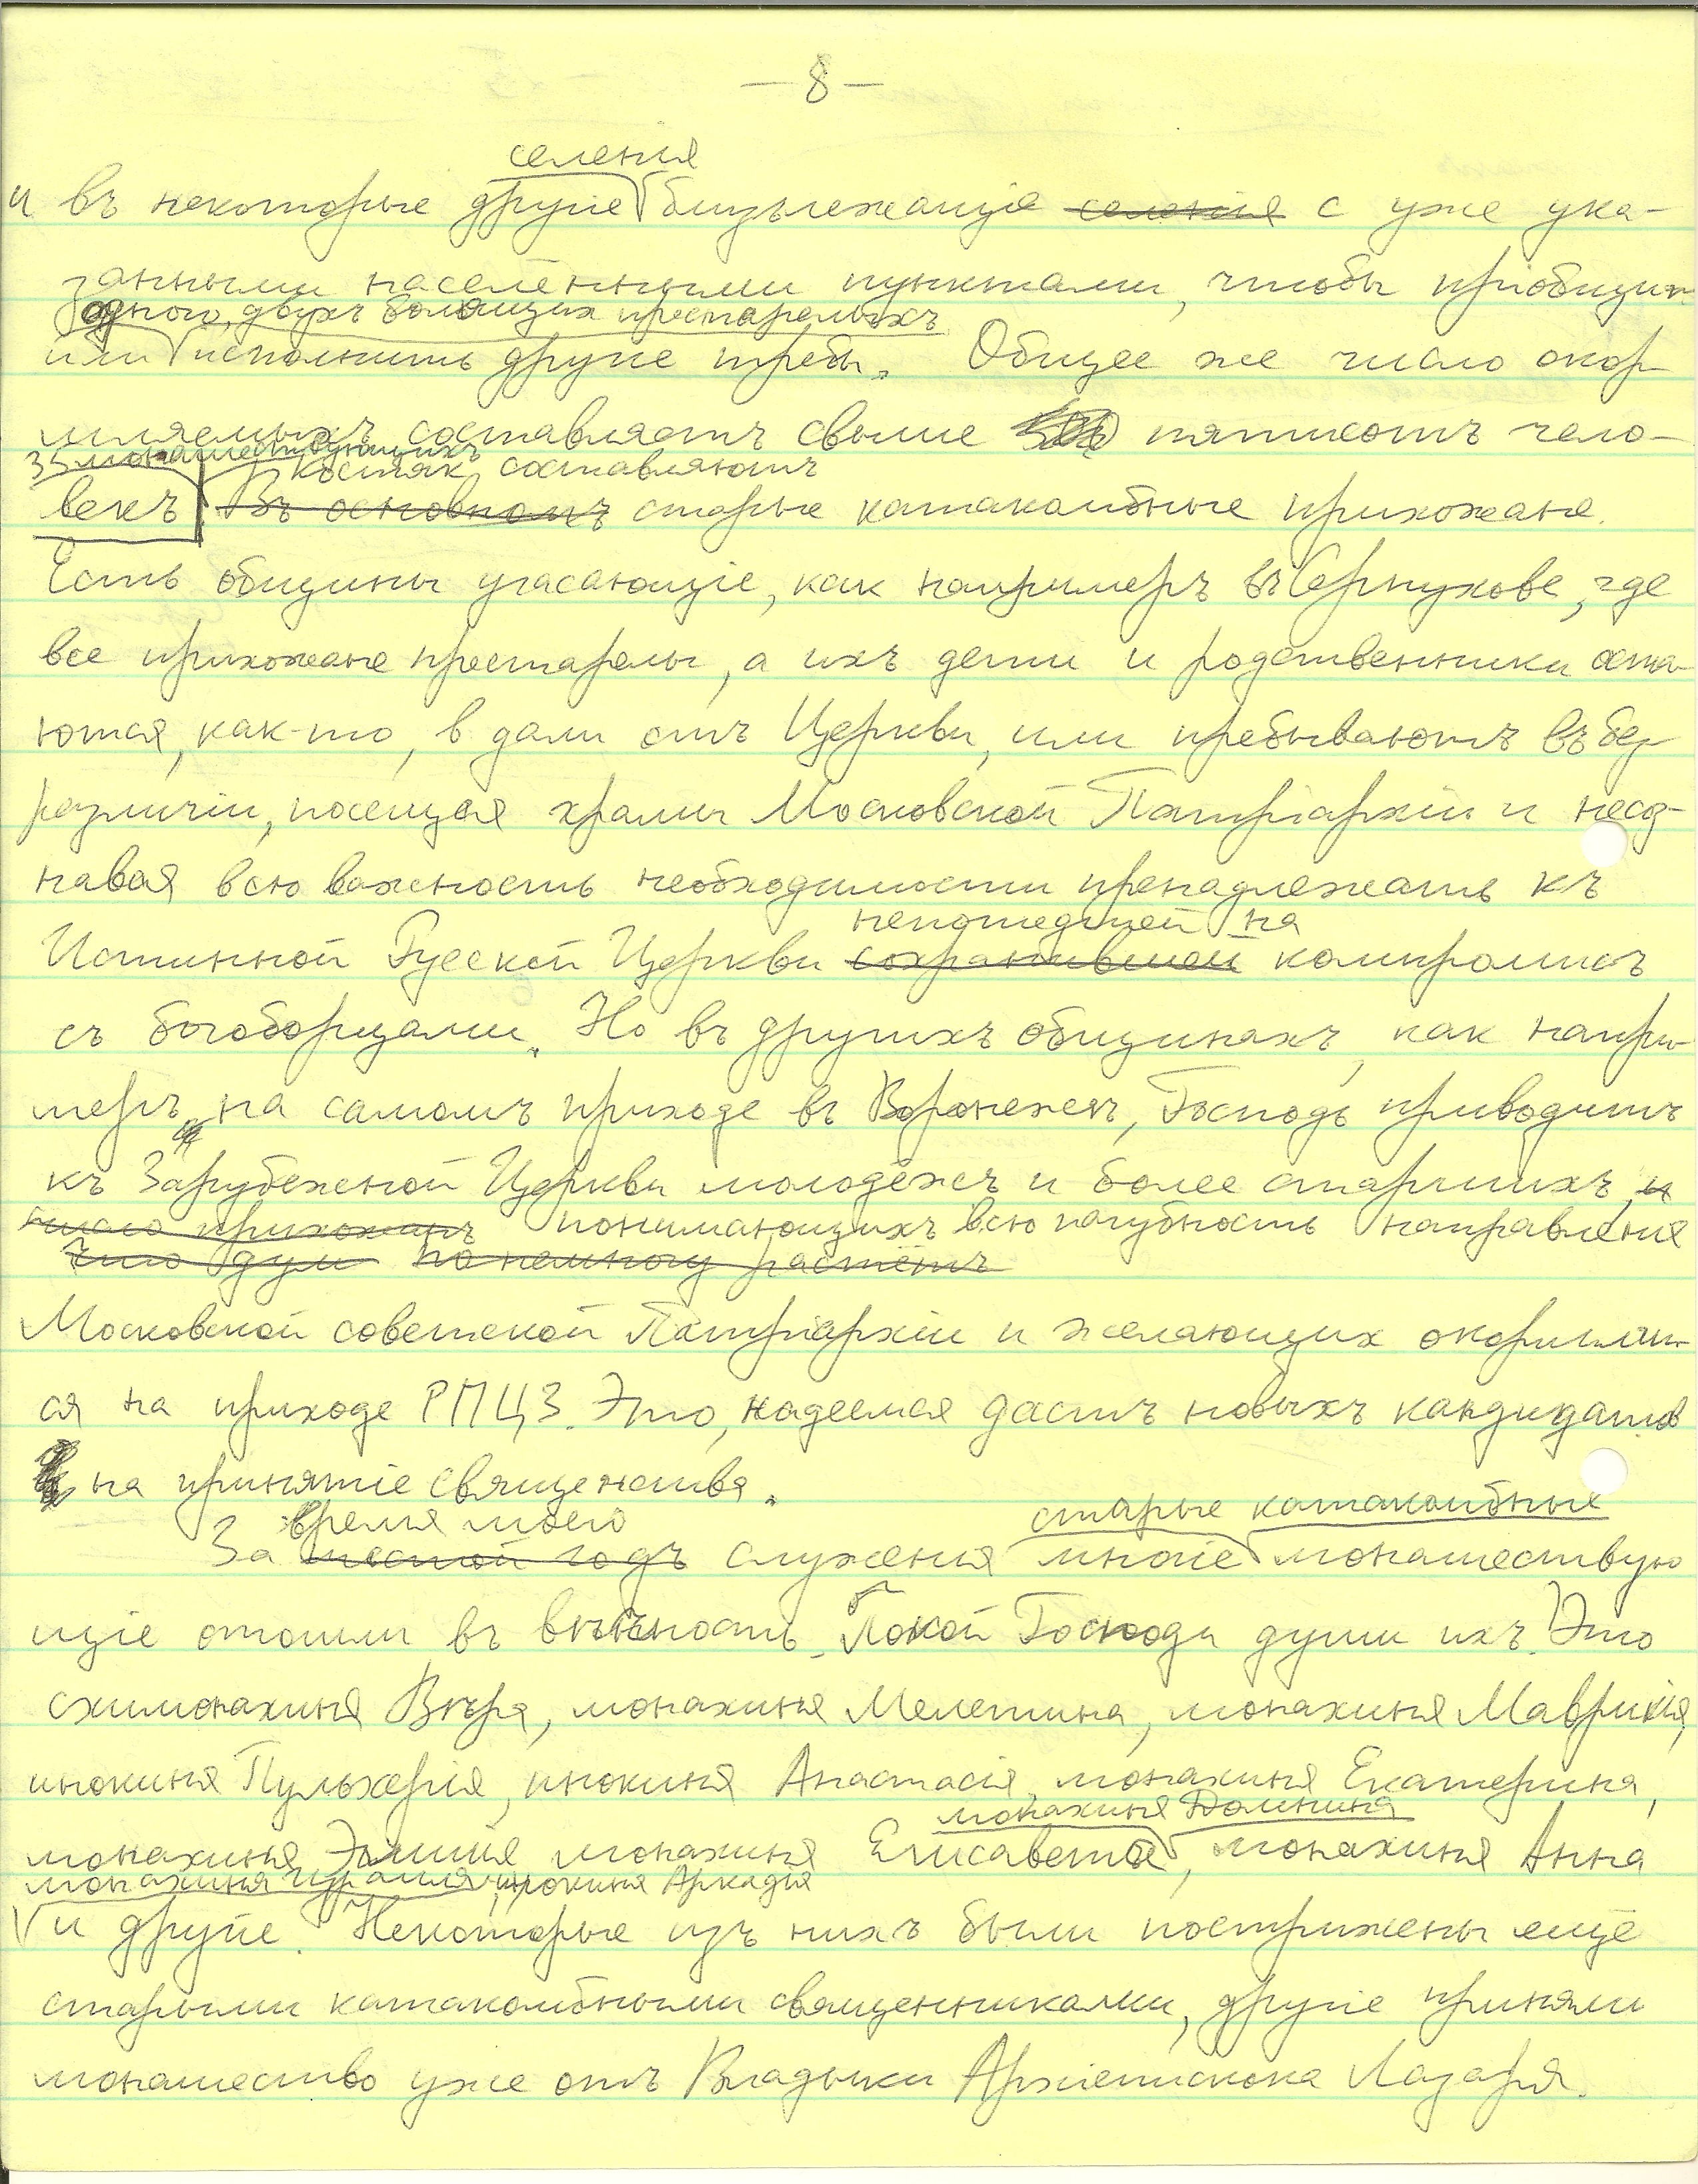 — 8 —
селенія
и въ некоторые другіе близълежащіе селенія с уже ука-
занными населёнными пунктами, чтобы пріобщить
одного, двухъ болящихъ престарелыхъ
или исполнить другіе требы. Общее же число окор
мляемыхъ составляетъ свыше 500 пятисотъ чело-
35 монашествующихъ костяк составляютъ
векъ Въ основномъ старые катакомбные прихожане.
Есть общины угасающіе, как например въ Серпухове, где
все прихожане престарелы, а ихъ дети и родственники оста-
ются, как-то, в дали отъ Церкви, или пребываютъ въ без
различіи, посещая храмы Московской Патріархіи и несоз-
навая всю важность необходимости пренадлежать къ
непошедшей на
Истинной Русской Церкви сохранившей компромисъ
съ богоборцами. Но въ другихъ общинахъ, как напри-
меръ, на самомъ приходе въ Воронежѣ, Господь приводитъ
къ Зарубежной Церкви молодёжь и более старшихъ, и
число прихожанъ понимающихъ всю пагубность направленія
что дум понемногу растётъ
Московской советской Патріархіи и желающих окормлять-
ся на приходе РПЦЗ. Это, надеемся дастъ новыхъ кандидатов
на принятіе священства.
время моего старые катакомбные
За шестой годъ служенія многіе монашествую
щіе отошли въ вѣчность. Покой Господи души ихъ! Это
схимонахиня Вѣра, монахиня Мелетина, монахиня Маврикія,
инокиня Пульхерія, инокиня Анастасія, монахиня Екатерина,
монахиня Домнина
монахиня Эмилія монахиня Елисавета, монахиня Анна
монахиня Ираида, инокиня Аркадія
и другіе. Некоторые изъ нихъ были пострижены ещё
старыми катакомбными священниками, другіе приняли
монашество уже отъ Владыки Архіепископа Лазаря.